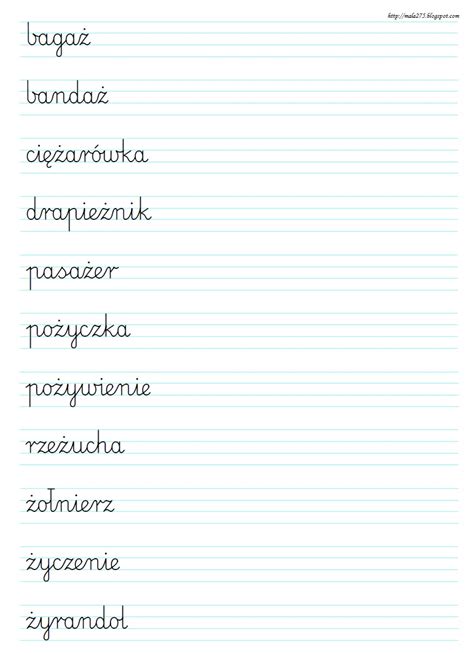 http://mala275.blogspot.com
bagaż
bandaż
ciężarówka
drapieżnik
pasażer
pożyczka
pożywienie
rzeżucha
żołnierz
życzenie
żyrandol